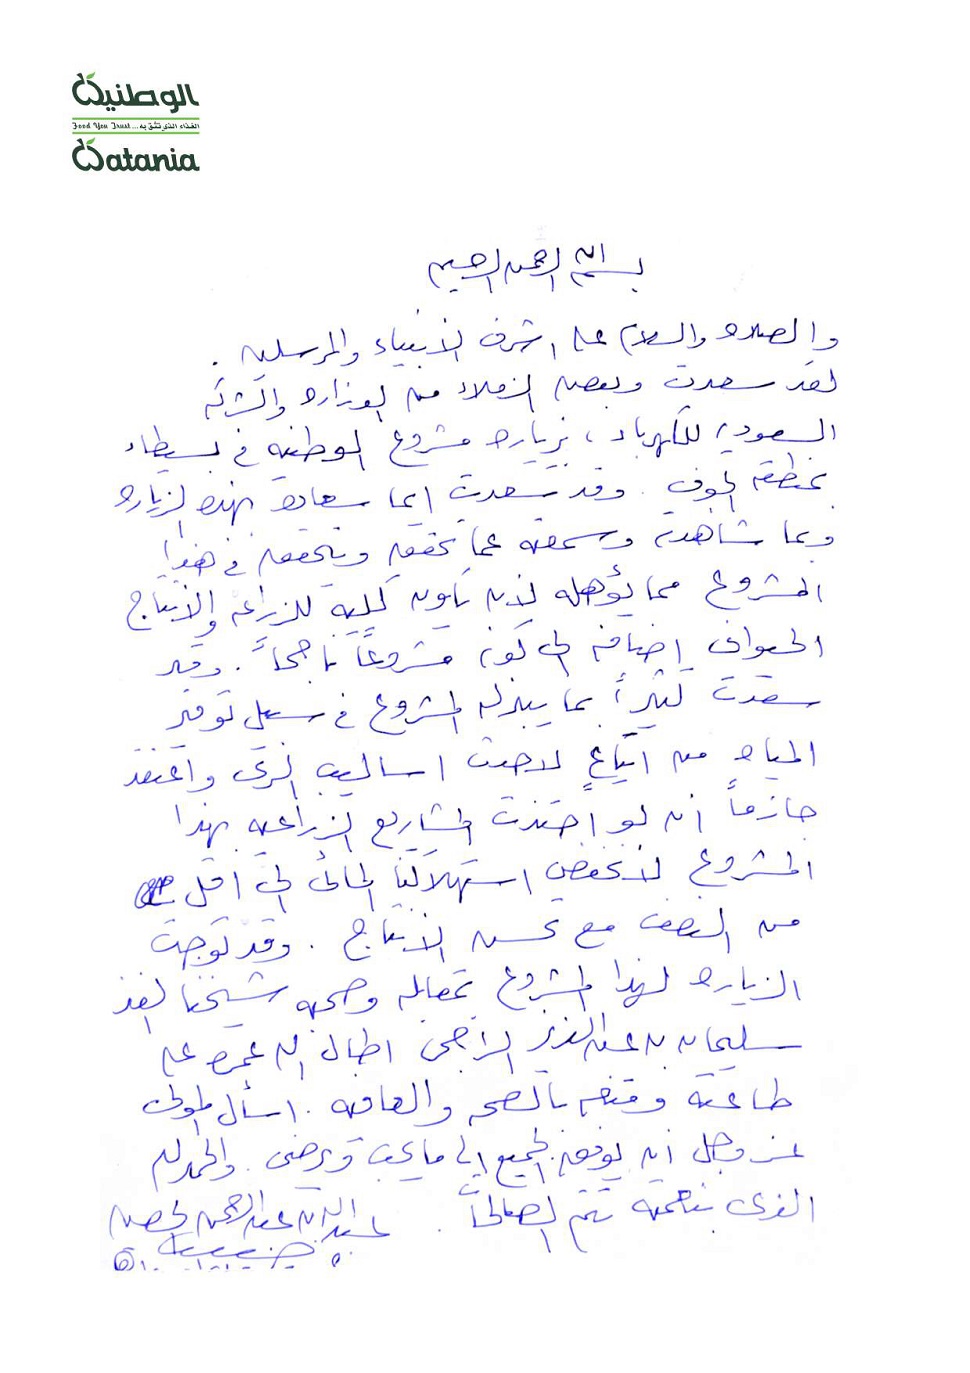 الوطنية
Food You Trust... الغذاء الذي تثق به
Watania
بسم الله الرحمن الرحيم
والصلاة والسلام على اشرف الأنبياء والمرسلين .
لقد سعدت وبعض الزملاء من الوزارة والشركة
السعودية للكهرباء ، بزيارة مشروع الوطنية في بسيطاء
بمنطقة الجوف . وقد سعدت ايما سعادة بهذه الزيارة
وبما شاهدته وسمعته عما تحقق ويتحقق في هذا
المشروع مما يؤهله لأن يكون كلية للزراعة والإنتاج
الحيواني إضافة الى كونه مشروعاً ناجحاً . وقد
سعدت كثيراً بما يبذله المشروع في سبيل توفير
المياه من اتباع لاحدث اساليب الري واعتقد
جازماً أنه لو أحتذت المشاريع الزراعية بهذا
المشروع لانخفض استهلاكنا المائي الى اقل
من النصف مع تحسن الأنتاج . وقد توجت
الزيارة لهذا المشروع بمقابلة وصحبة شيخنا الفذ
سليمان بن عبدالعزيز الراجحي اطال الله عمره على
طاعته ومتعه بالصحة والعافية . اسأل المولى
عز وجل أن يوفق الجميع إلى ما يحب ويرضى . والحمد لله
الذي بنعمته تتم الصالحات .
عبدالله بن عبدالرحمن الحصين